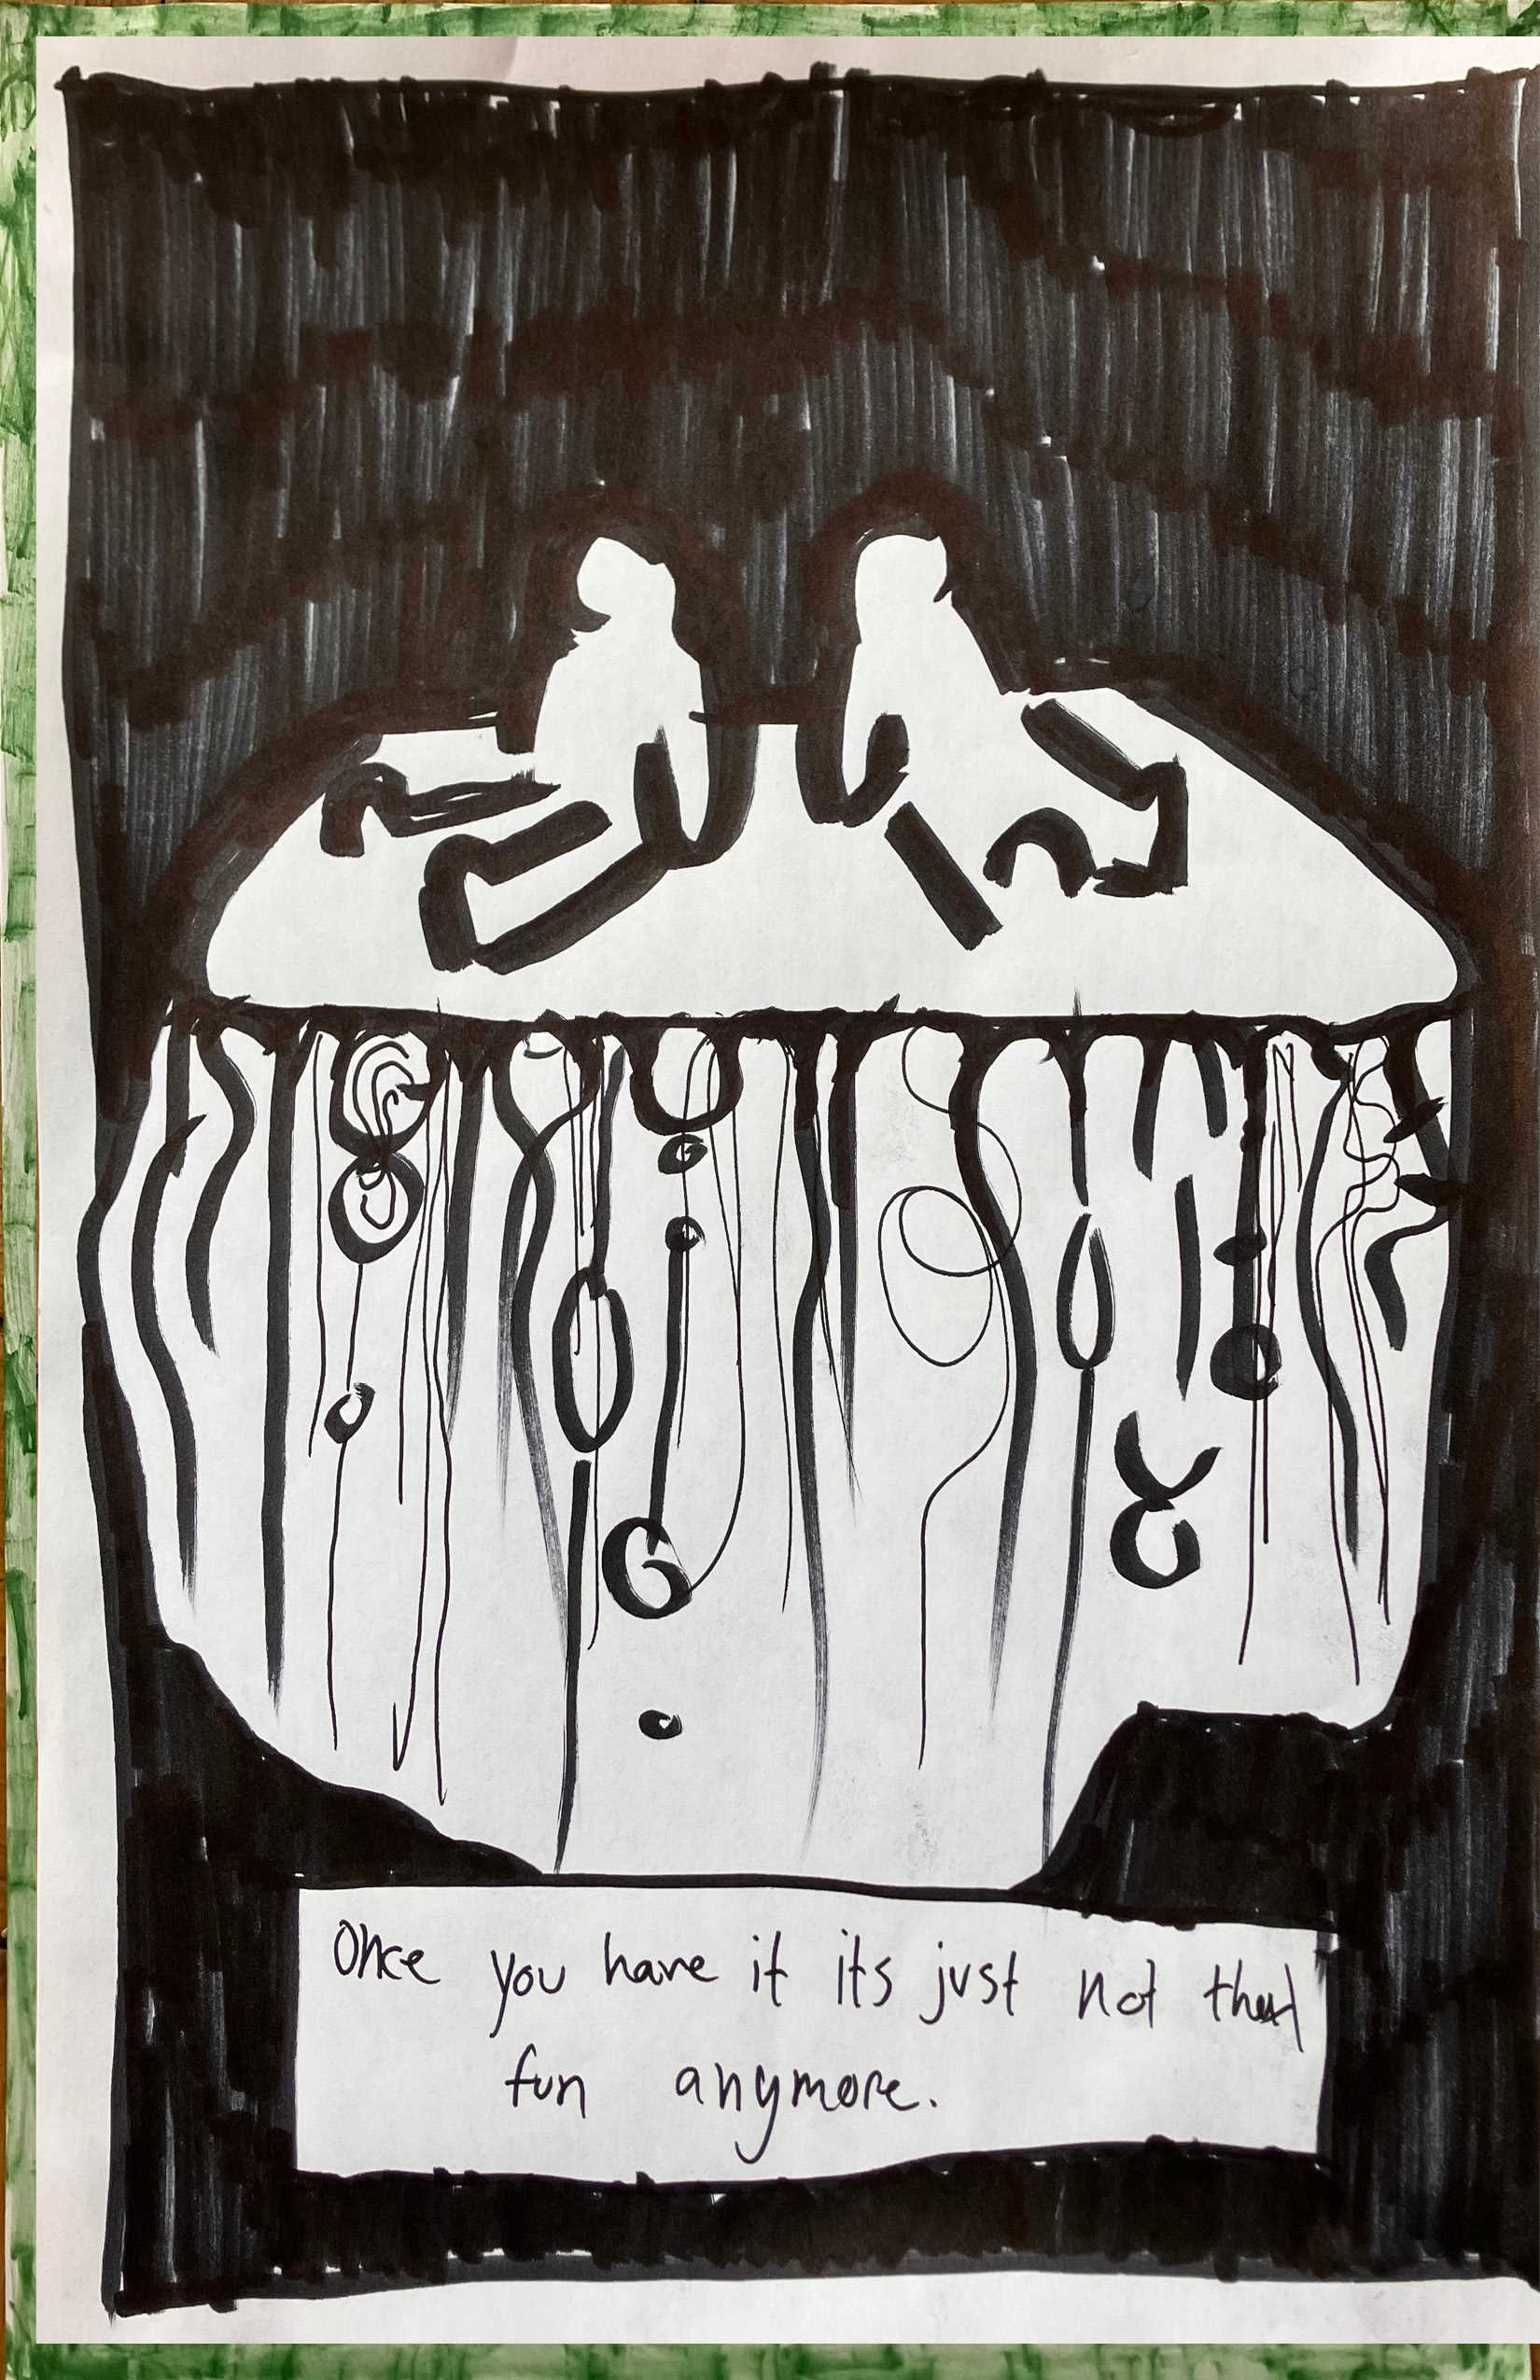 Once you have it its just not that
fun anymore.